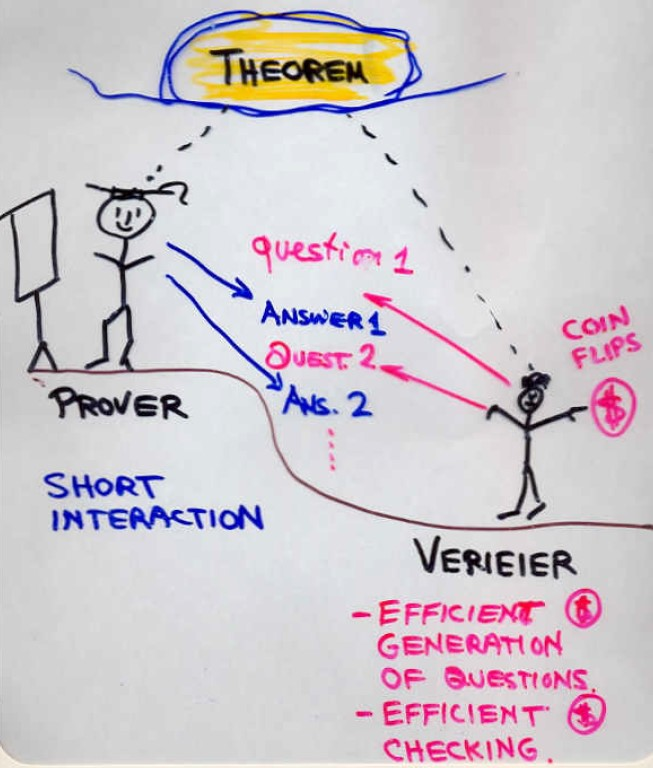 THEOREM
question 1
ANSWER 1
QUEST. 2
ANS. 2
COIN
FLIPS
$
PROVER
SHORT
INTERACTION
VERIEIER
- EFFICIENT $
GENERATION
OF QUESTIONS.
- EFFICIENT $
CHECKING.